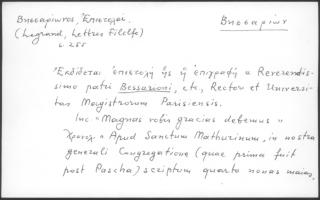 Βησσαρίωνος, Ἐπιστολαί.
Βησσαρίων
(Legrand, Lettres Filelfe)
σ. 255
Ἐκδίδεται ἐπιστολὴ ἧς ἡ ἐπιγραφὴ «Reverendis-
simo patri Bessarioni, etc, Rector et Universi-
tas Magistrorum Parisiensis.
Inc «Magnas vobis gracias debemus»
Χρονολ. «Apud Sanctum Mathurinum, in nostra
generali Congregatione (quae prima fuit
post Pascha) scriptum quarto nonas maias,